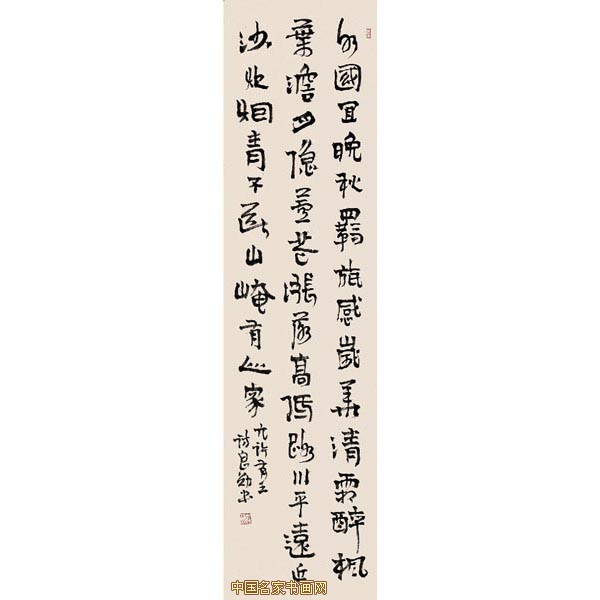 水國宜晚秋羈旅感歲華清霜醉楓
葉澹月隱蘆花漲落高低路川平遠近
沙炊烟青不斷山崦有人家
元許有壬
詩良勛書
中国名家书画网